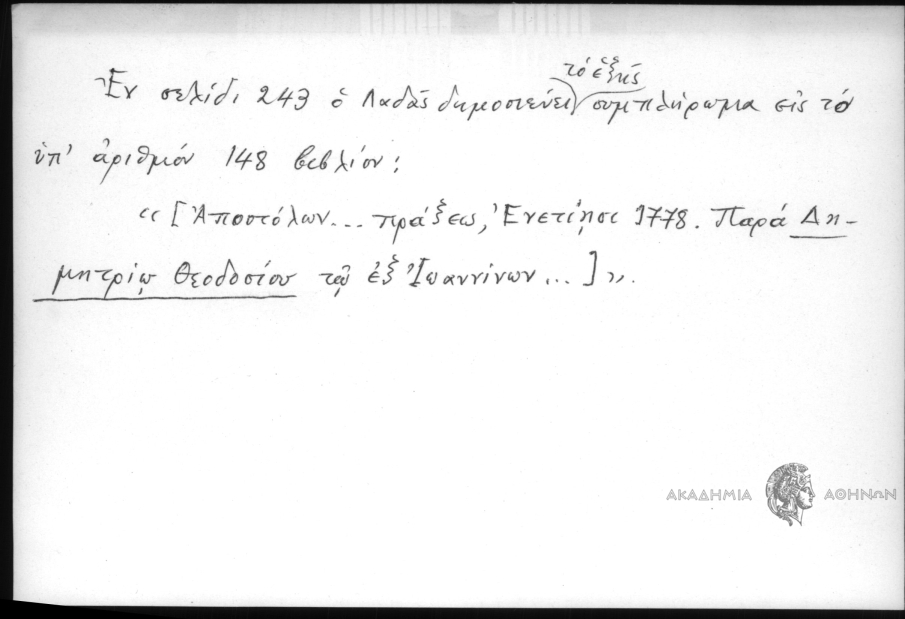 Ἐν σελίδι 243 ὁ Λαδᾶς δημοσιεύει τό ἑξῆς συμπλήρωμα εἰς τό
ὑπ' ἀριθμόν 148 βιβλίον:
« [Ἀποστόλων... πράξεως, Ἐνετίῃσι 1778. Παρά Δη-
μητρίῳ Θεοδοσίου τῷ ἐξ Ἰωαννίνων ... ] ».
ΑΚΑΔΗΜΙΑ ΑΘΗΝΩΝ